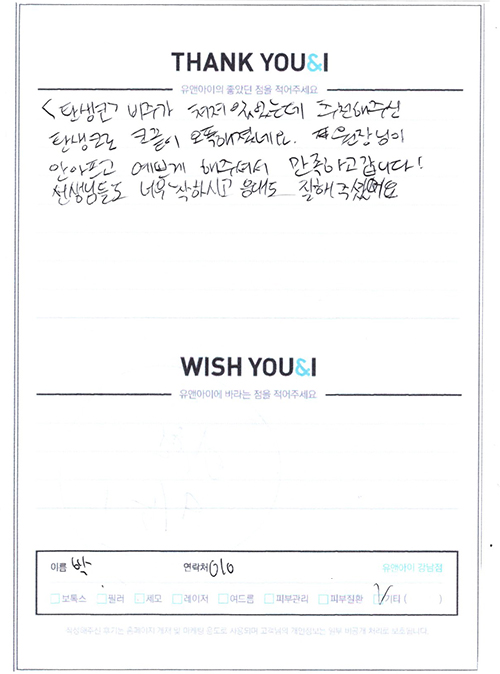 THANK YOU&I
유앤아이의 좋았던 점을 적어주세요
<탄생코> 비주가 쳐져있었는데 추천해주신
탄생코로 코끝이 오똑해졌네요. 표원장님이
안아프고 예쁘게 해주셔서 만족하고갑니다!
선생님들도 너무 착하시고 응대도 잘해주셨어요
WISH YOU&I
유앤아이에 바라는 점을 적어주세요
이름 박 연락처 010 유앤아이 강남점
보톡스 필러 제모 레이저 여드름 피부관리 피부질환 기타 ( )